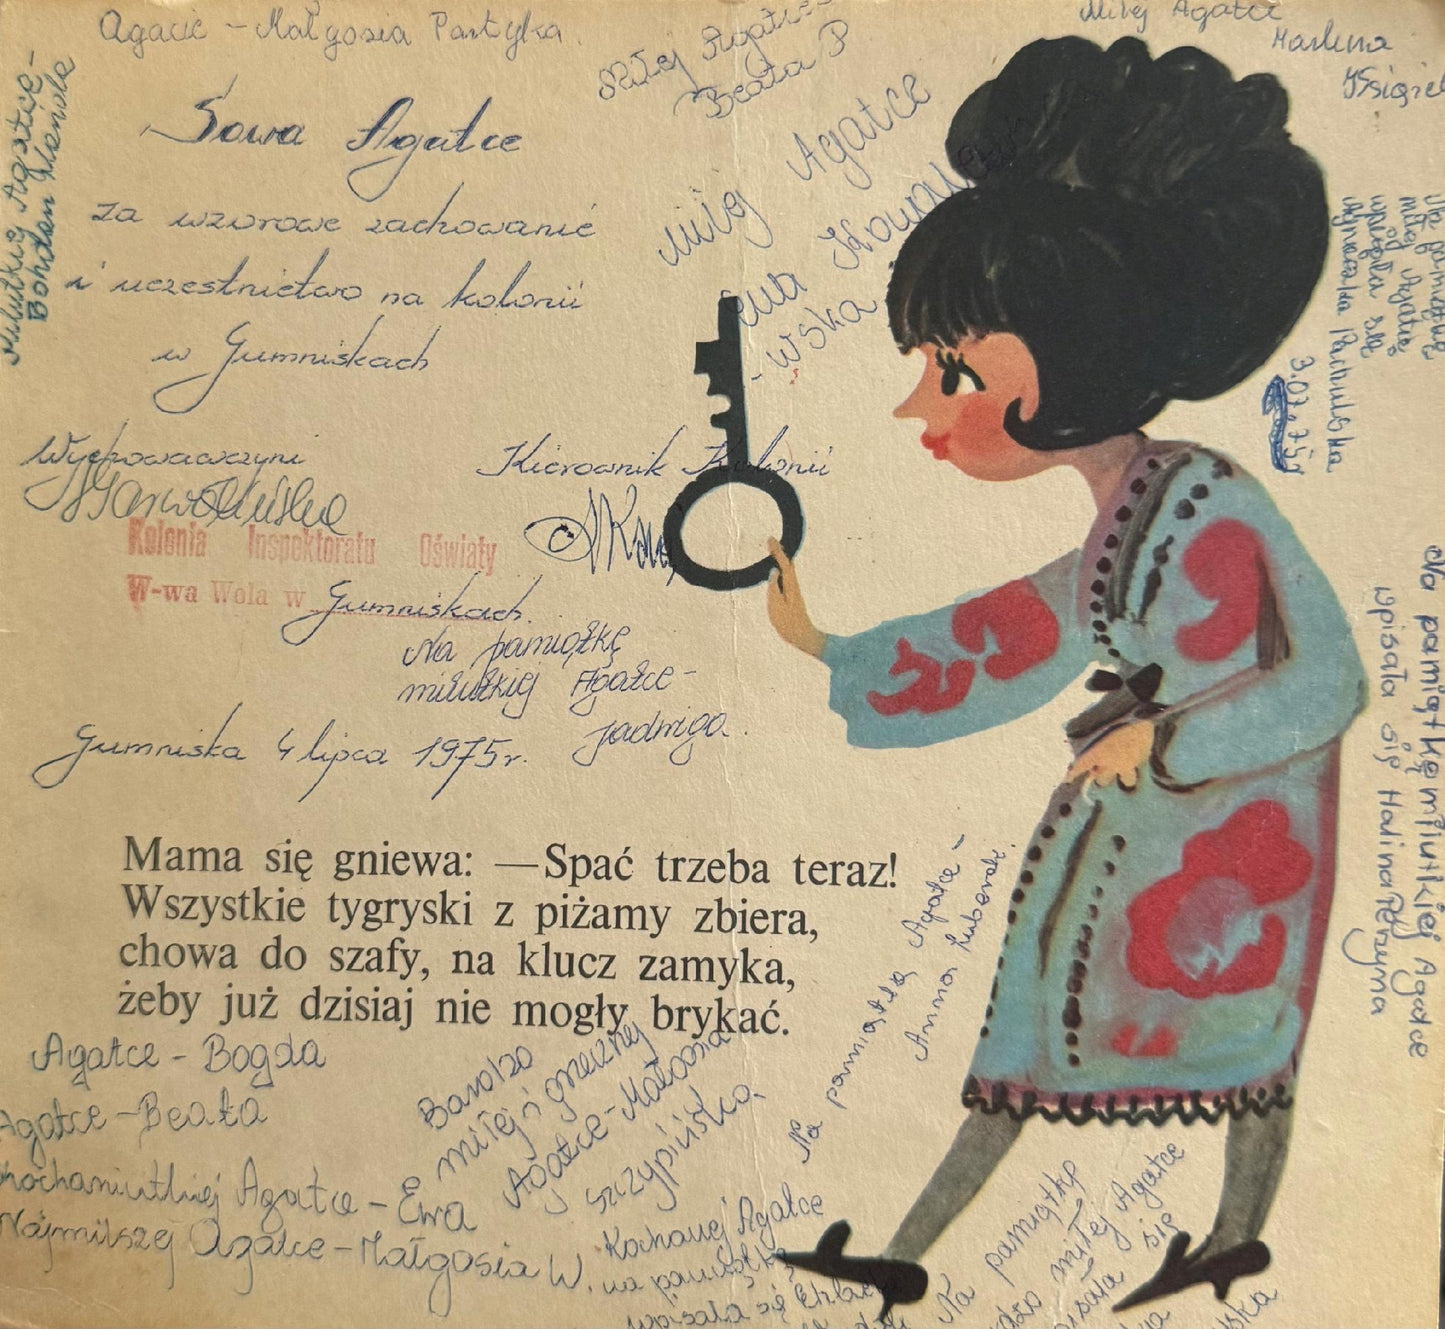 Agacie - Małgosia Partyka
Miłej Agatce
Beata P
Miłej Agatce
Marlena
Milutkiej Agatce -
Bohdan
Sowa Agatce
za wzorowe zachowanie
i uczestnictwo na kolonii
w Gumniskach
Miłej Agatce
Ewa Kowalew
- wska
miłej Agatce
wpisała się
Agnieszka Pachulska
3.07.75r
Wychowawczyni
Kierownik Kolonii
Kolonia Inspektoratu Oświaty
W-wa Wola w Gumniskach.
Na pamiątkę
milutkiej Agatce -
Jadwiga.
Gumniska 4 lipca 1975r.
Na pamiątkę milutkiej Agatce
wpisała się Halina Perzyna
Mama się gniewa: —Spać trzeba teraz!
Wszystkie tygryski z piżamy zbiera,
chowa do szafy, na klucz zamyka,
żeby już dzisiaj nie mogły brykać.
Na pamiątkę Agatce -
Anna
Agatce - Bogda
Agatce - Beata
Kochaniutkiej Agatce - Ewa
Najmilszej Agatce - Małgosia W.
Bardzo
miłej i grzecznej
Agatce - Małgosia
Szczypińska.
Kochanej Agatce
na pamiątkę
wpisała się
Na pamiątkę
miłej Agatce
się